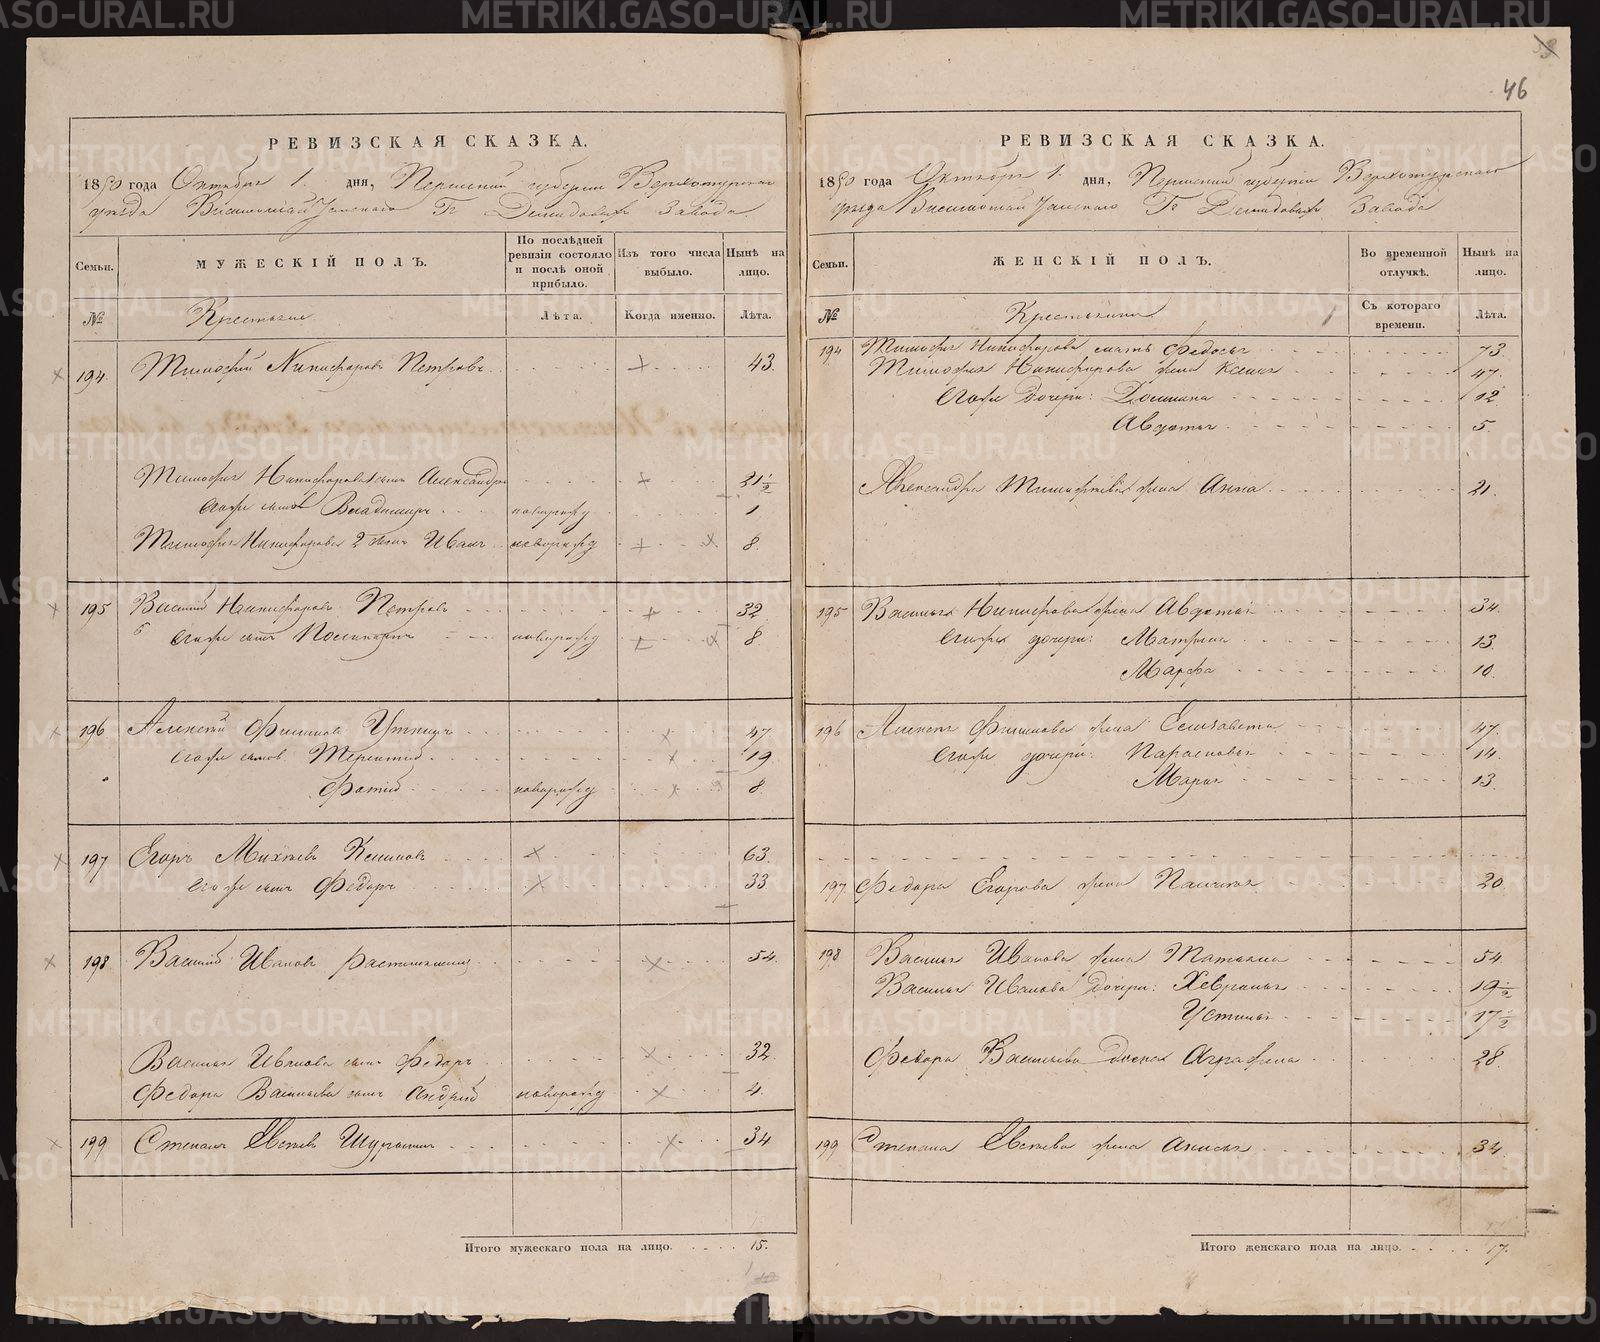 46
РЕВИЗСКАЯ СКАЗКА.
1850 года Октября 1. дня, Пермской губернии Верхотурскаго
уезда Висимошайтанскаго Гг Демидовыхъ Завода
Семьи.
МУЖЕСКІЙ ПОЛЪ.
По послѣдней ревизіи состояло и послѣ оной прибыло.
Изъ того числа выбыло.
Нынѣ на лицо.
№
Крестьяне
Лѣта.
Когда именно.
Лѣта.
194. Тимофей Никифоровъ Петровъ 43.
Тимофея Никифорова сынъ Александръ 21 1/2
Его же сынъ Владимиръ новорожд 1
Тимофея Никифорова 2 сынъ Иванъ новорожд 8.
195 Василий Никифоровъ Петровъ 32.
Его же сынъ новорожд 8.
196 Алексей Уткинъ 47
Его же сынов Терентий 19
Фотий новорожд 8.
197 Егоръ Михѣевъ 63.
Его же сынъ Федоръ 33.
198 Василий Ивановъ 54.
Василья Иванова сынъ Федоръ 32.
Федора Васильева сынъ Андрей новорожд 4.
199 Степанъ 34
Итого мужескаго пола на лицо. 15.
РЕВИЗСКАЯ СКАЗКА.
1850 года Октября 1. дня, Пермской губерніи Верхотурскаго
уезда Висимошайтанскаго Гг Демидовыхъ Завода
Семьи.
ЖЕНСКІЙ ПОЛЪ.
Во временной отлучкѣ.
Нынѣ на лицо.
№
Крестьянки
Съ котораго времени.
Лѣта.
194 Тимофея Никифорова мать Федосья 73.
Тимофея Никифорова жена Ксенья 47.
Его же дочери: Домнина 12
Авдотья 5.
Александра Тимофеева жена Анна 21.
195 Василья Никифорова жена Авдотья 34.
Его же дочери: Матрена 13
Марфа 10.
196 Алексея жена Елизавета 47.
Его же дочери: Парасковья 14.
Марья 13.
197 Федора Егорова жена 20.
198 Василья Иванова жена Татьяна 54
Василья Иванова дочери: Хеврония 19 1/2
Устинья 17 1/2
Федора Васильева Аграфена 28.
199 Степана жена Анисья 34.
Итого женскаго пола на лицо. 17.
METRIKI.GASO-URAL.RU